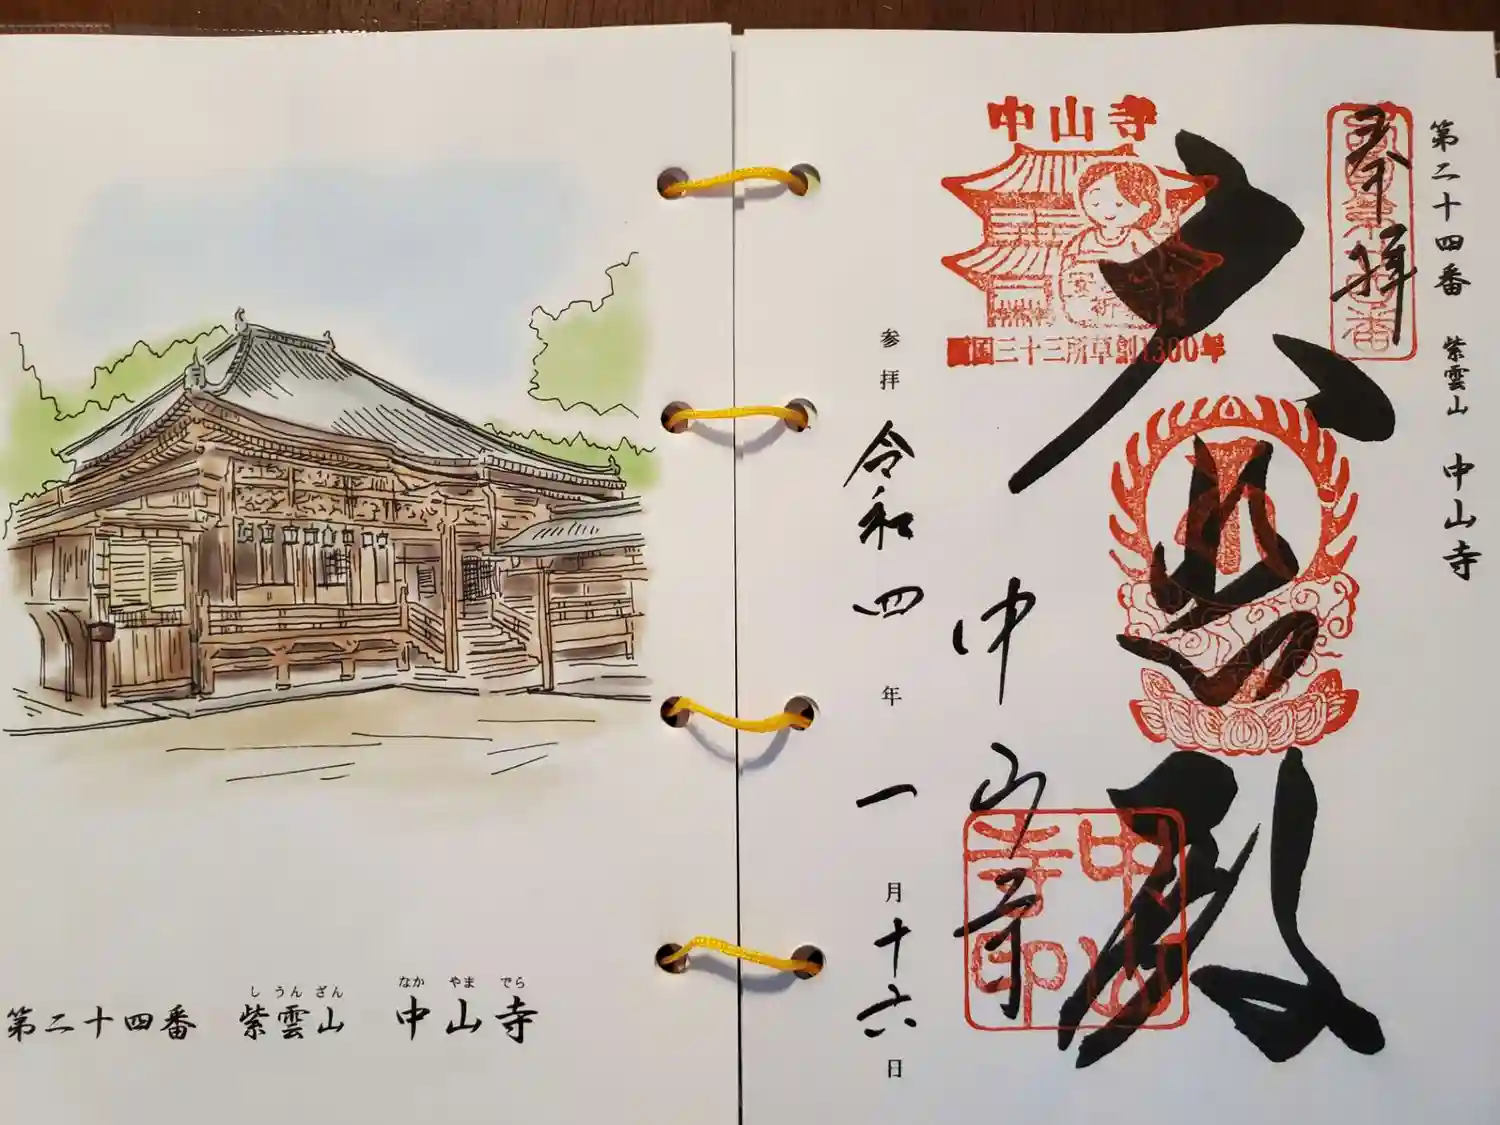 第二十四番 紫雲山 中山寺
し うん ざん なか やま でら
第二十四番 紫雲山 中山寺
奉拝
中山寺
国三十三所草創1300年
大悲殿
中山寺
中山寺印
参拝 令和四年一月十六日